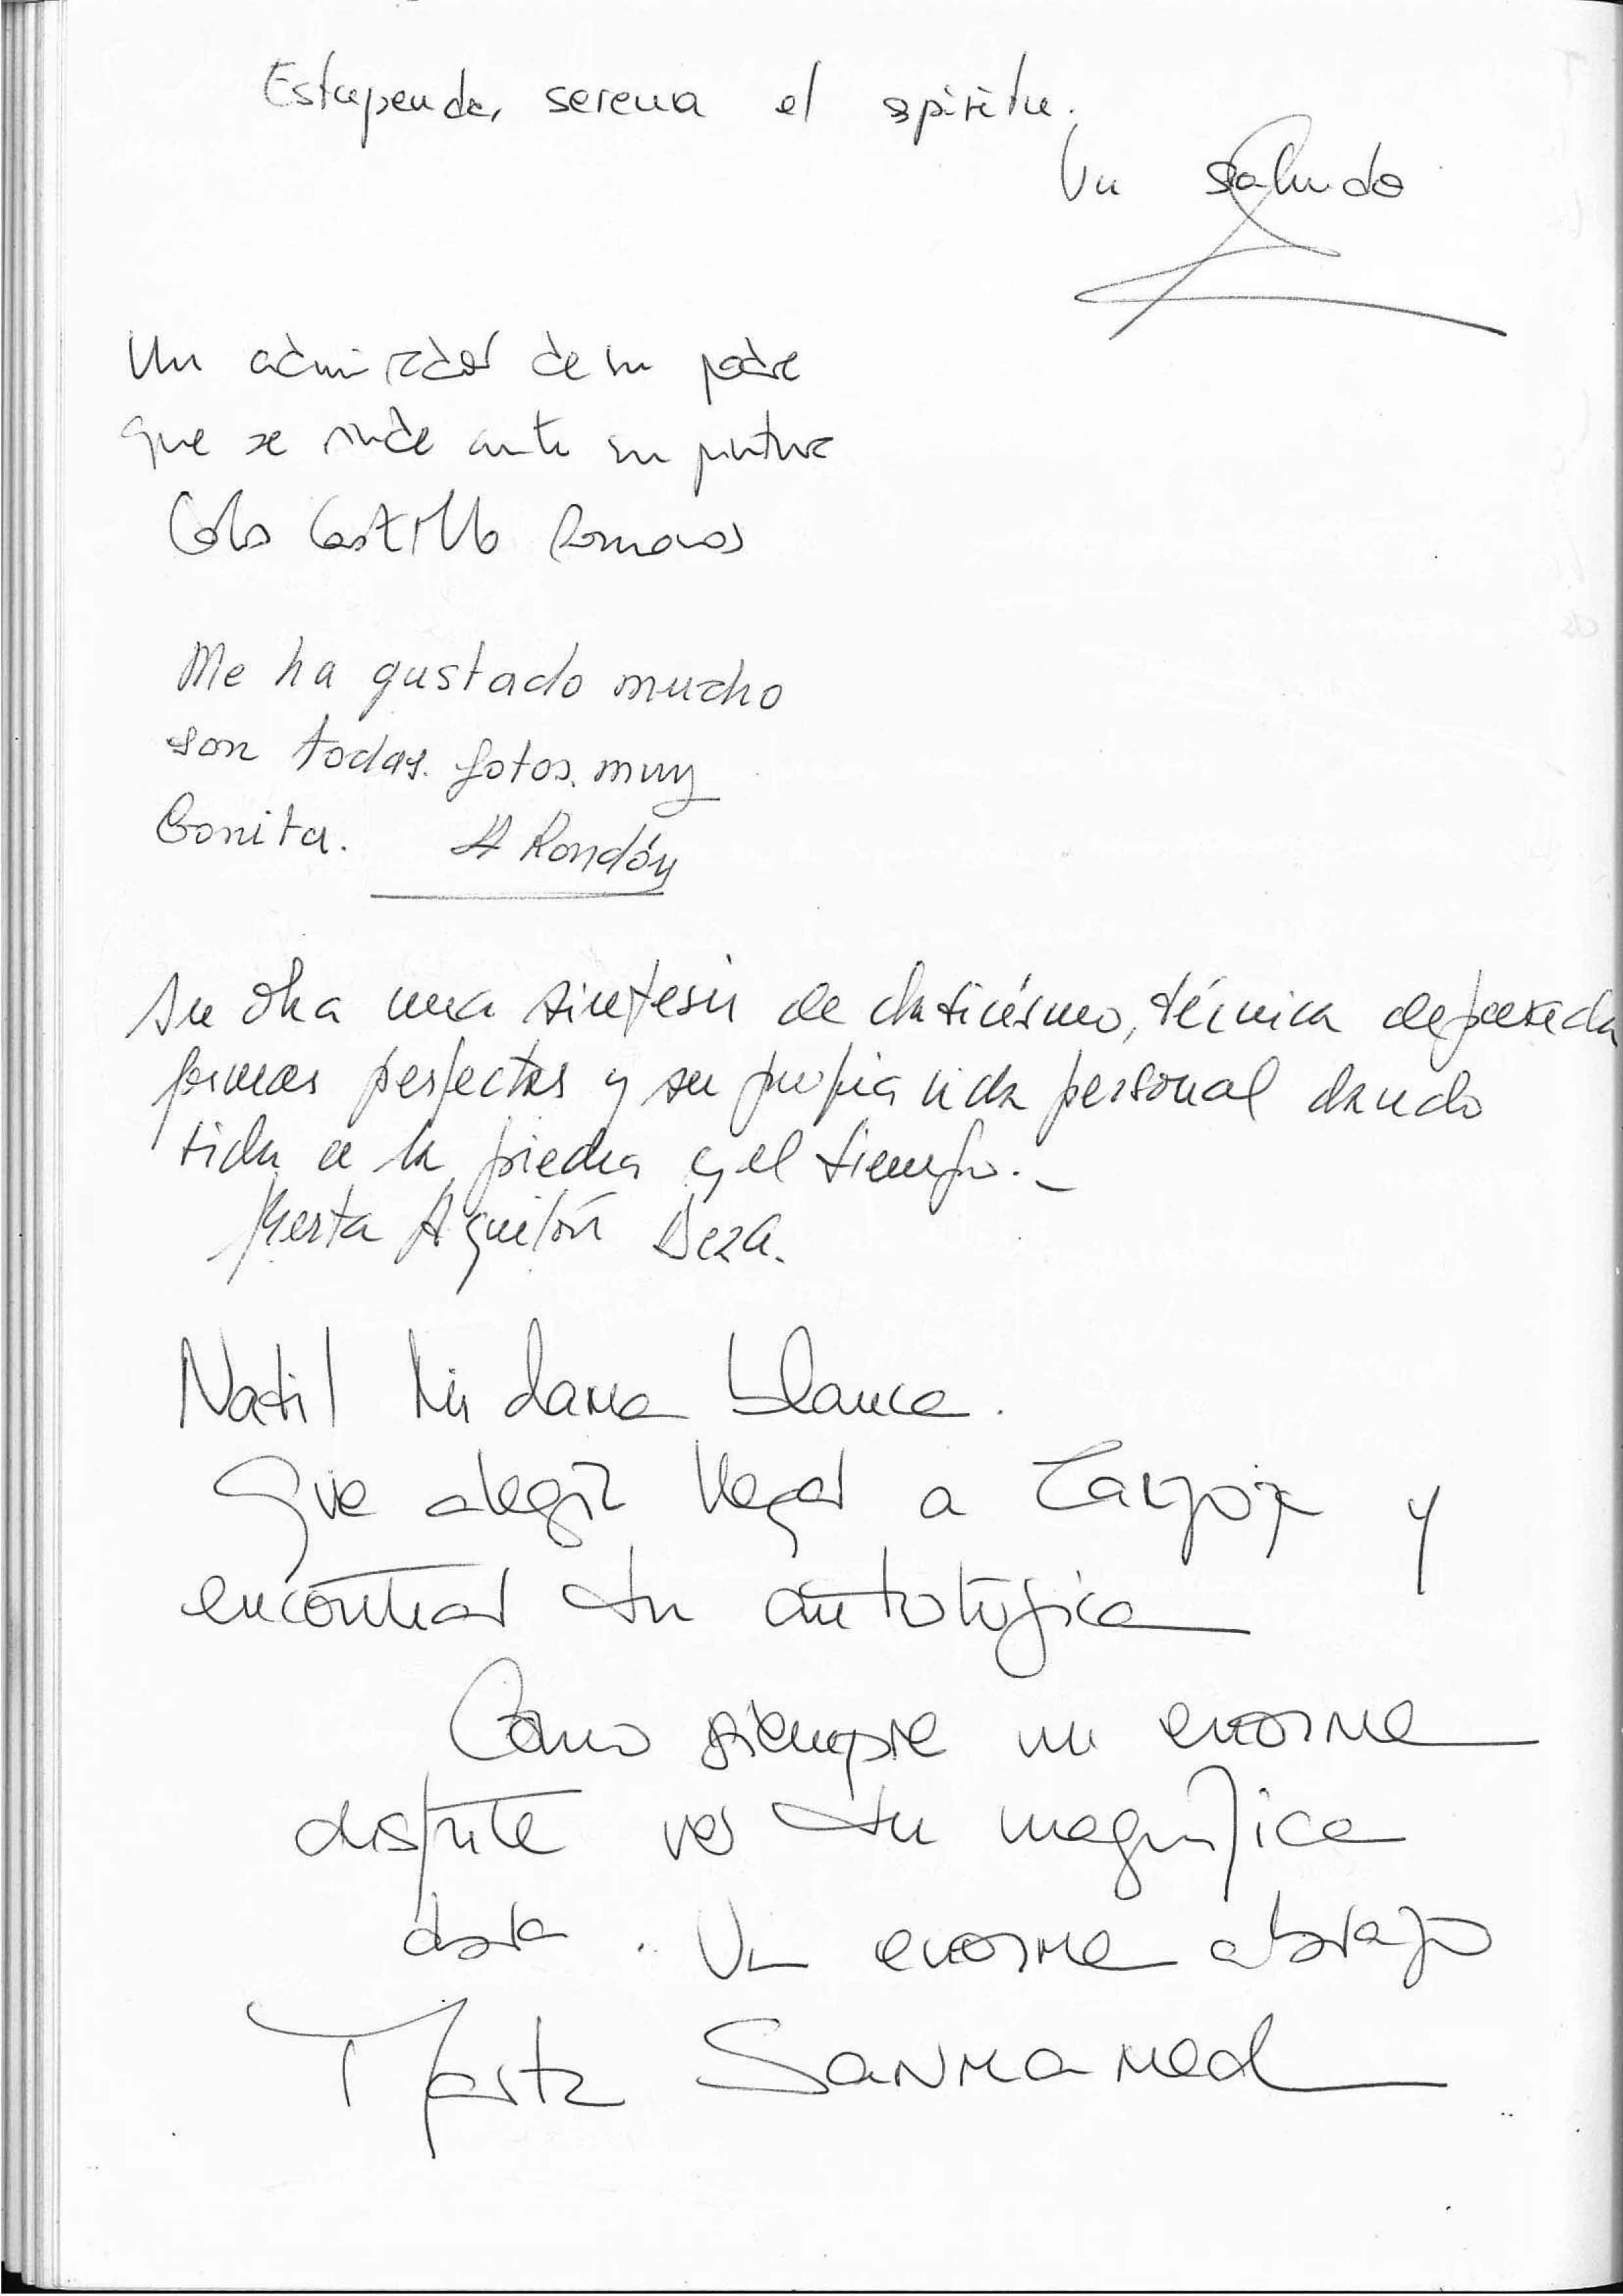 Estupenda, serena el espíritu.
Un saludo
Un admirador de su padre
que se rinde ante su pintura
Castillo Romanos
Me ha gustado mucho
son todas. fotos. muy
Bonita. A Rondón
Su obra una síntesis de clasicismo, técnica depurada
formas perfectas y su propia vida personal dando
vida a la piedra y el tiempo._
Aguilón Deza.
Nati! Mi dama blanca.
Que alegría llegar a Zaragoza y
encontrar tu antológica
Como siempre un enorme
disfrute ver tu magnífica
obra. Un enorme abrazo
Marta Sanmamed